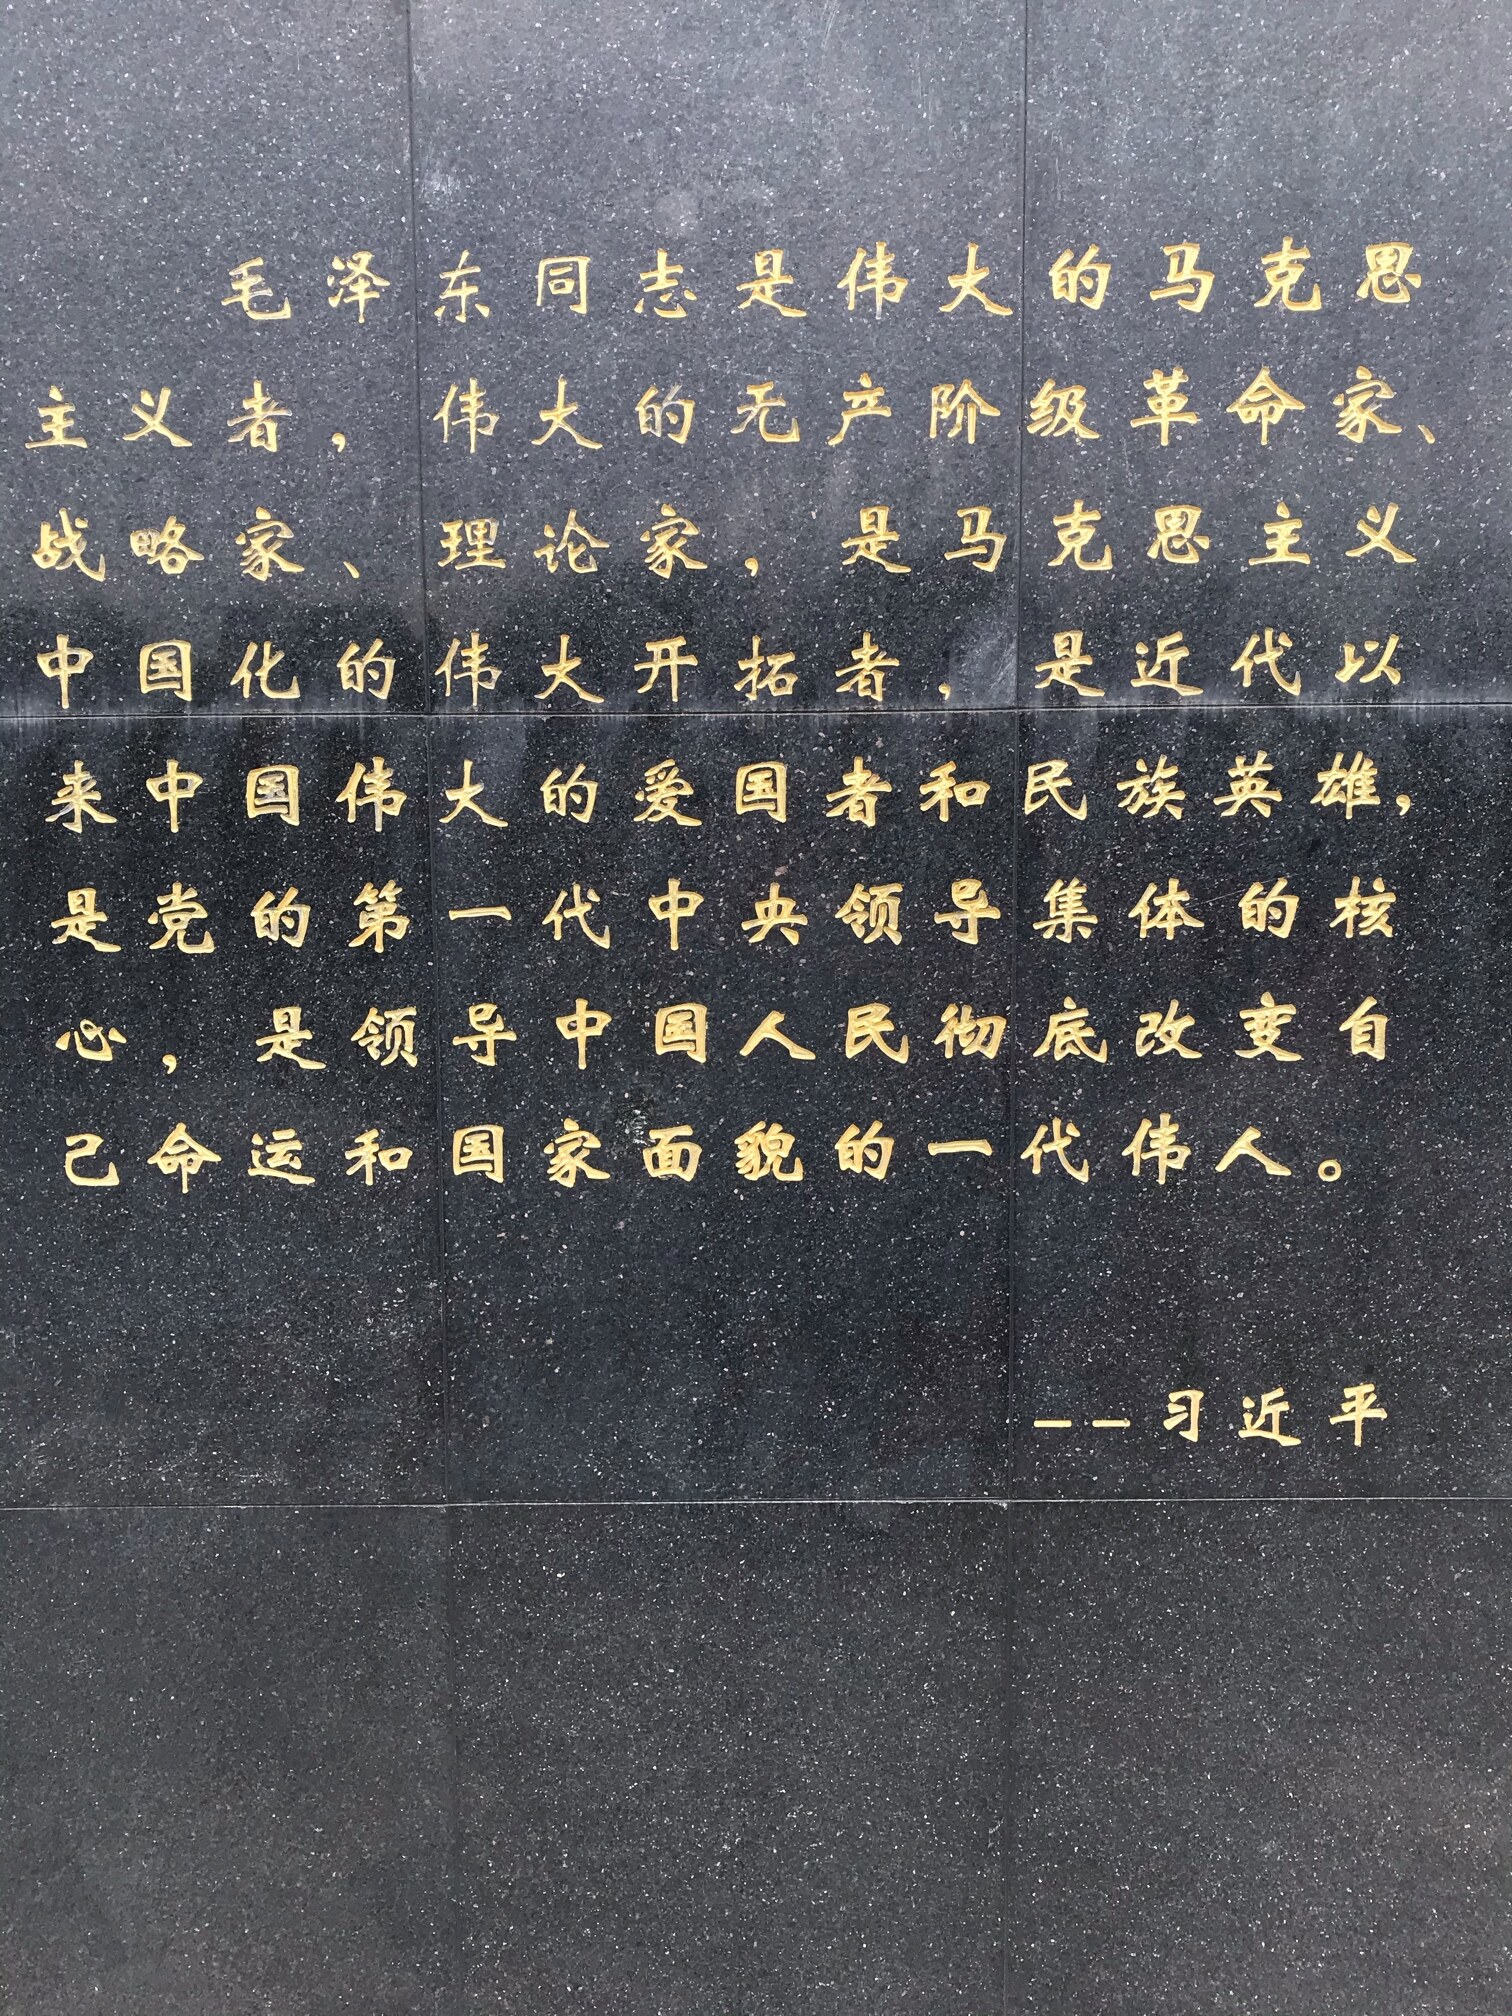 毛泽东同志是伟大的马克思
主义者，伟大的无产阶级革命家、
战略家、理论家，是马克思主义
中国化的伟大开拓者，是近代以
来中国伟大的爱国者和民族英雄，
是党的第一代中央领导集体的核
心，是领导中国人民彻底改变自
己命运和国家面貌的一代伟人。
——习近平